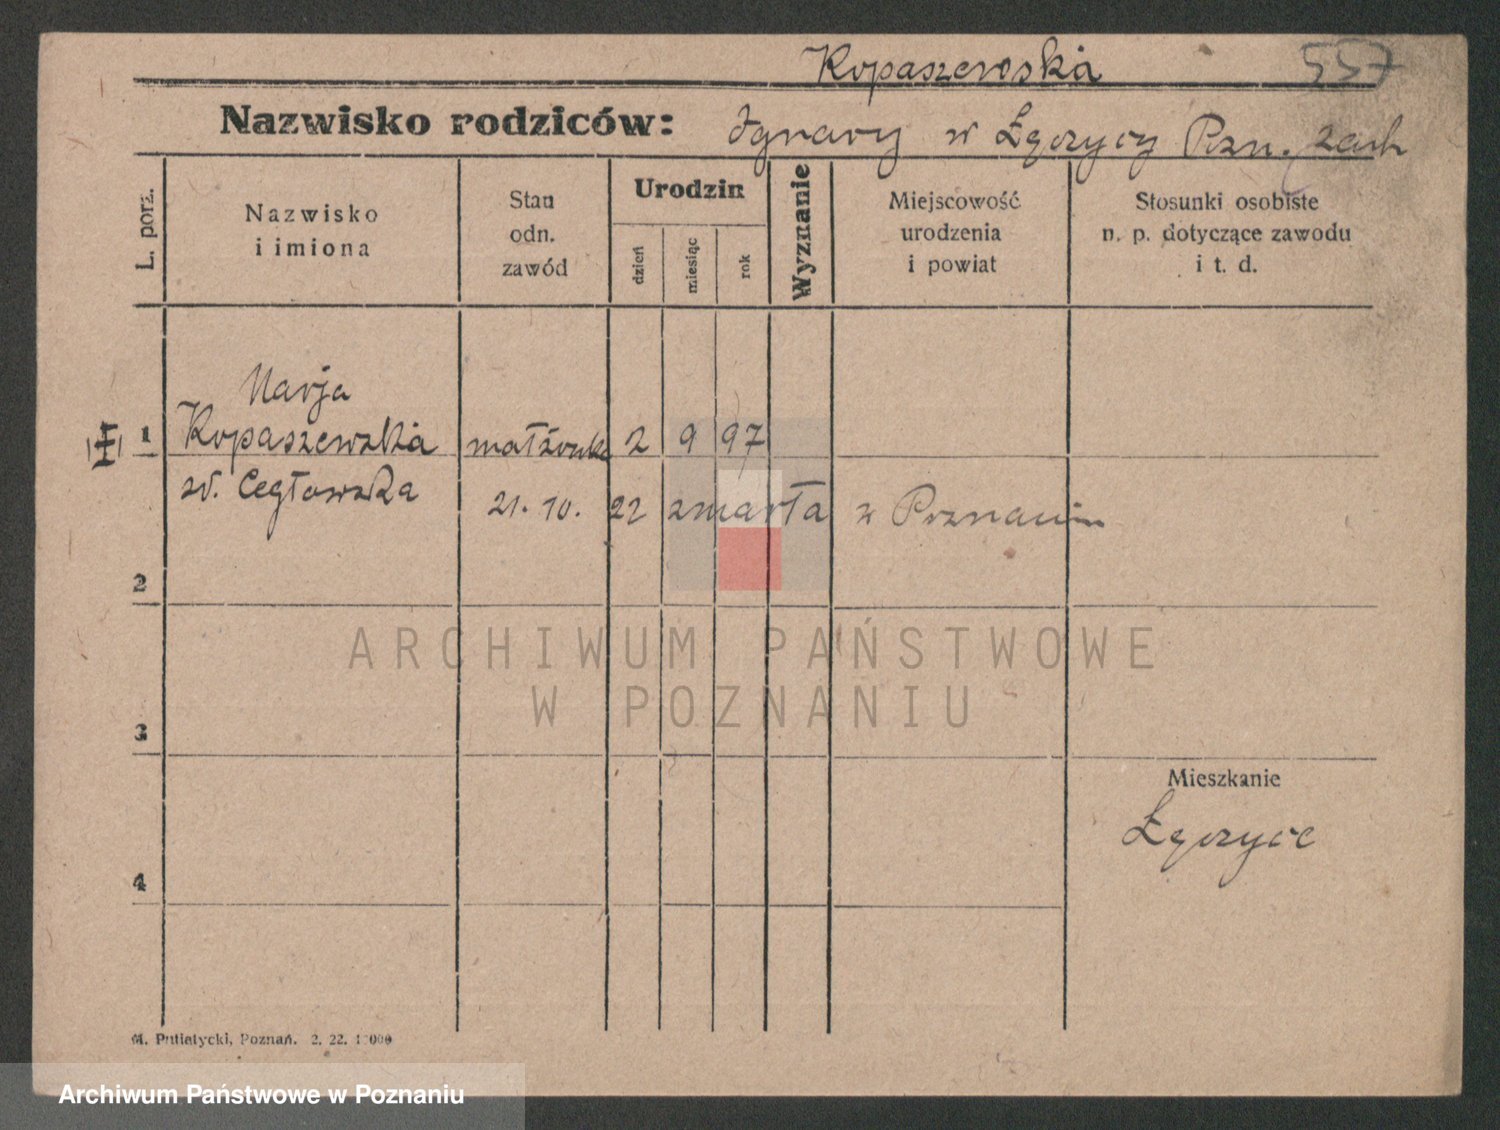 Kopaszewska 557
Nazwisko rodziców: Ignacy w Łęczycy Pozn. zach
L. porz.
Nazwisko
i imiona
Stan
odn.
zawód
Urodzin
dzień
miesiąc
rok
Wyznanie
Miejscowość
urodzenia
i powiat
Stosunki osobiste
n. p. dotyczące zawodu
i t. d.
Marja
1 Kopaszewska małżonka 2 9 97
zd. Cegłowska
21. 10. 22 zmarła w Poznaniu
2
ARCHIWUM PAŃSTWOWE
W POZNANIU
3
Mieszkanie
Łęczyce
4
M. Putiatycki, Poznań. 2. 22. 1000
Archiwum Państwowe w Poznaniu